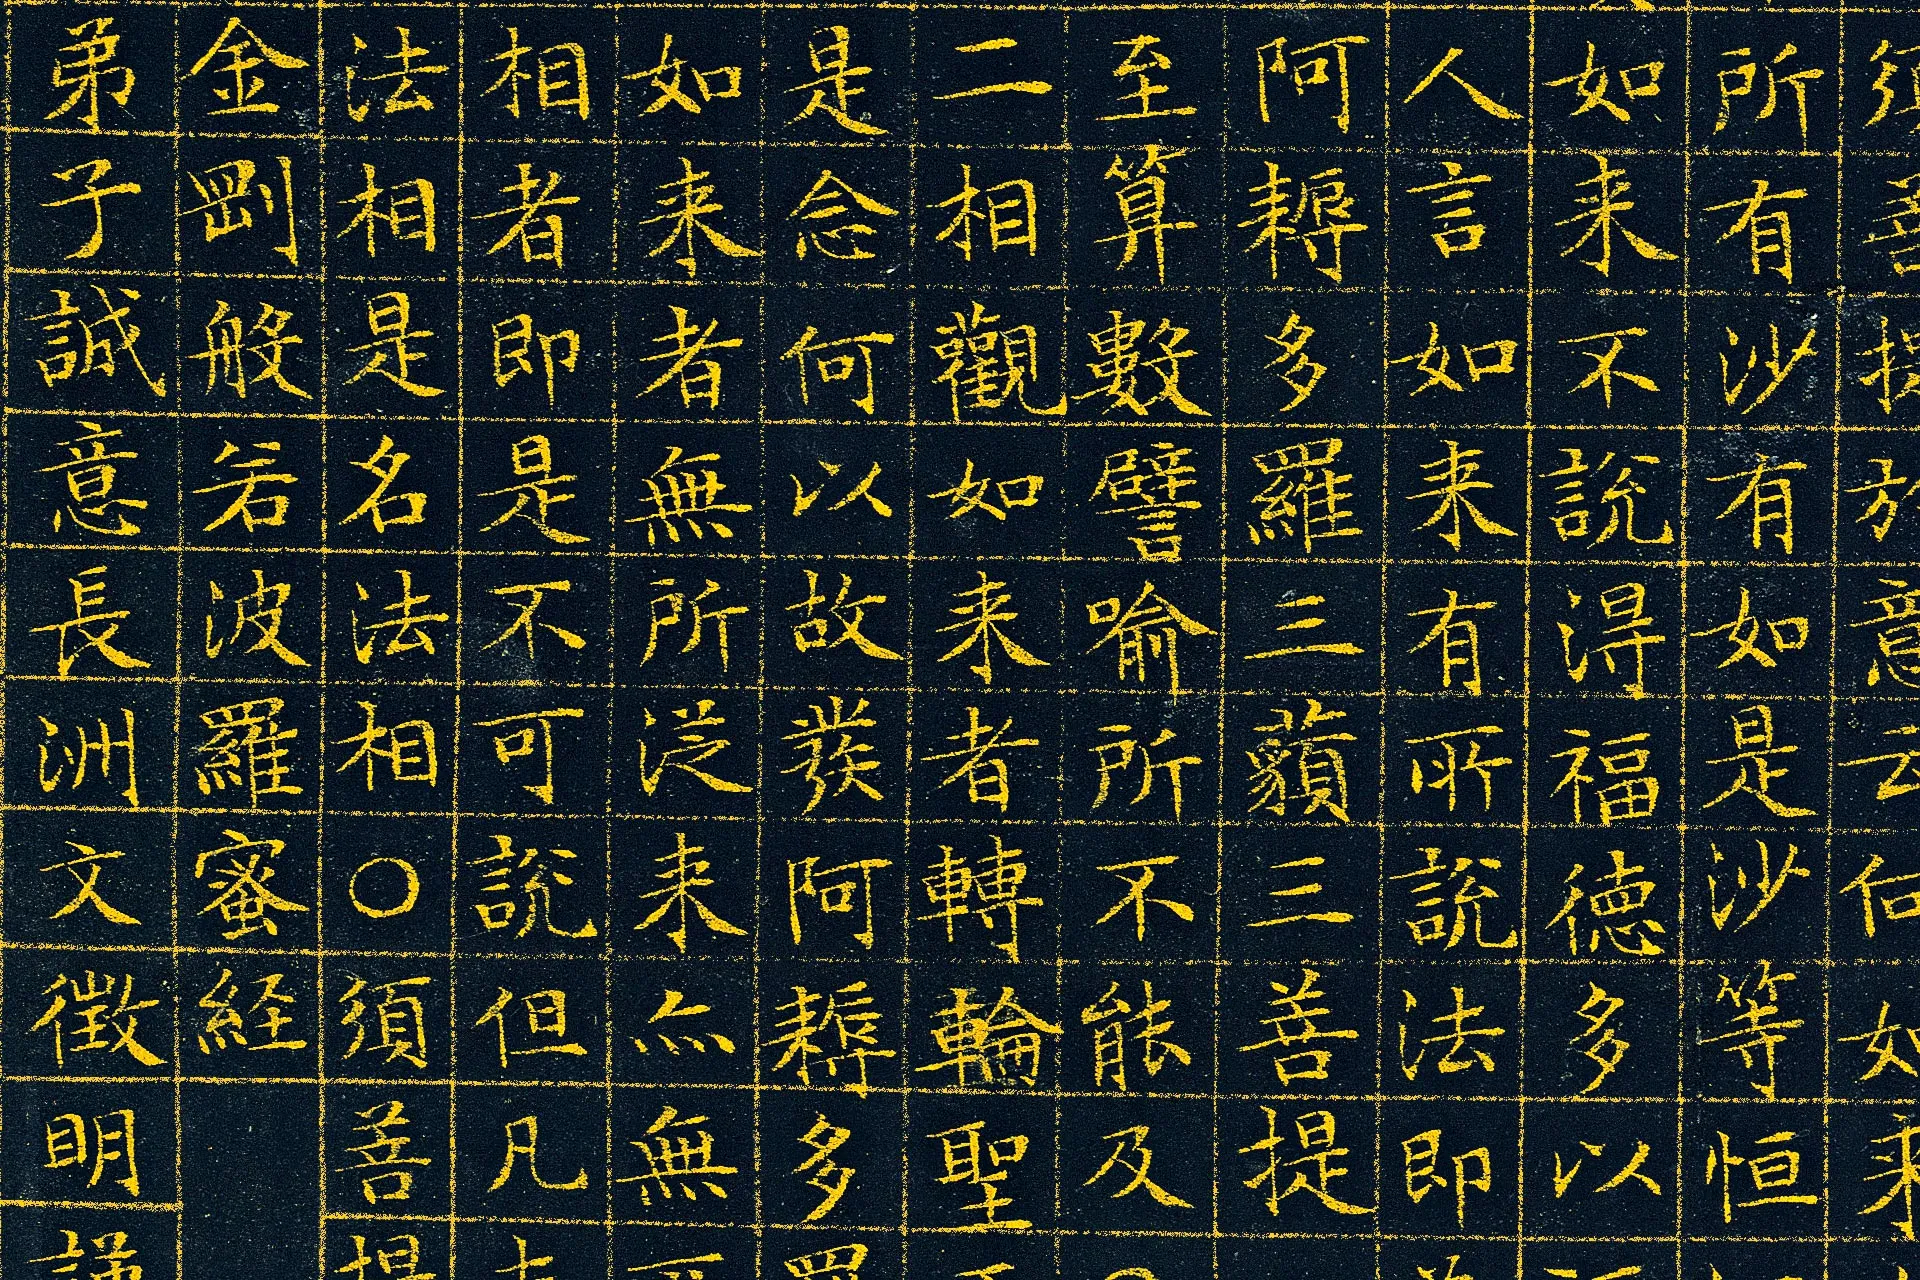 須菩提於意云何如来
所有沙有如是沙等恒
如来不說得福德多以
人言如来有所說法即
阿耨多羅三藐三菩提
至算數譬喻所不能及
二相觀如来者轉輪聖
是念何以故發阿耨多
如来者無所從来亦無
相者即是不可說但凡
法相是名法相○須菩
金剛般若波羅蜜経
弟子誠意長洲文徵明